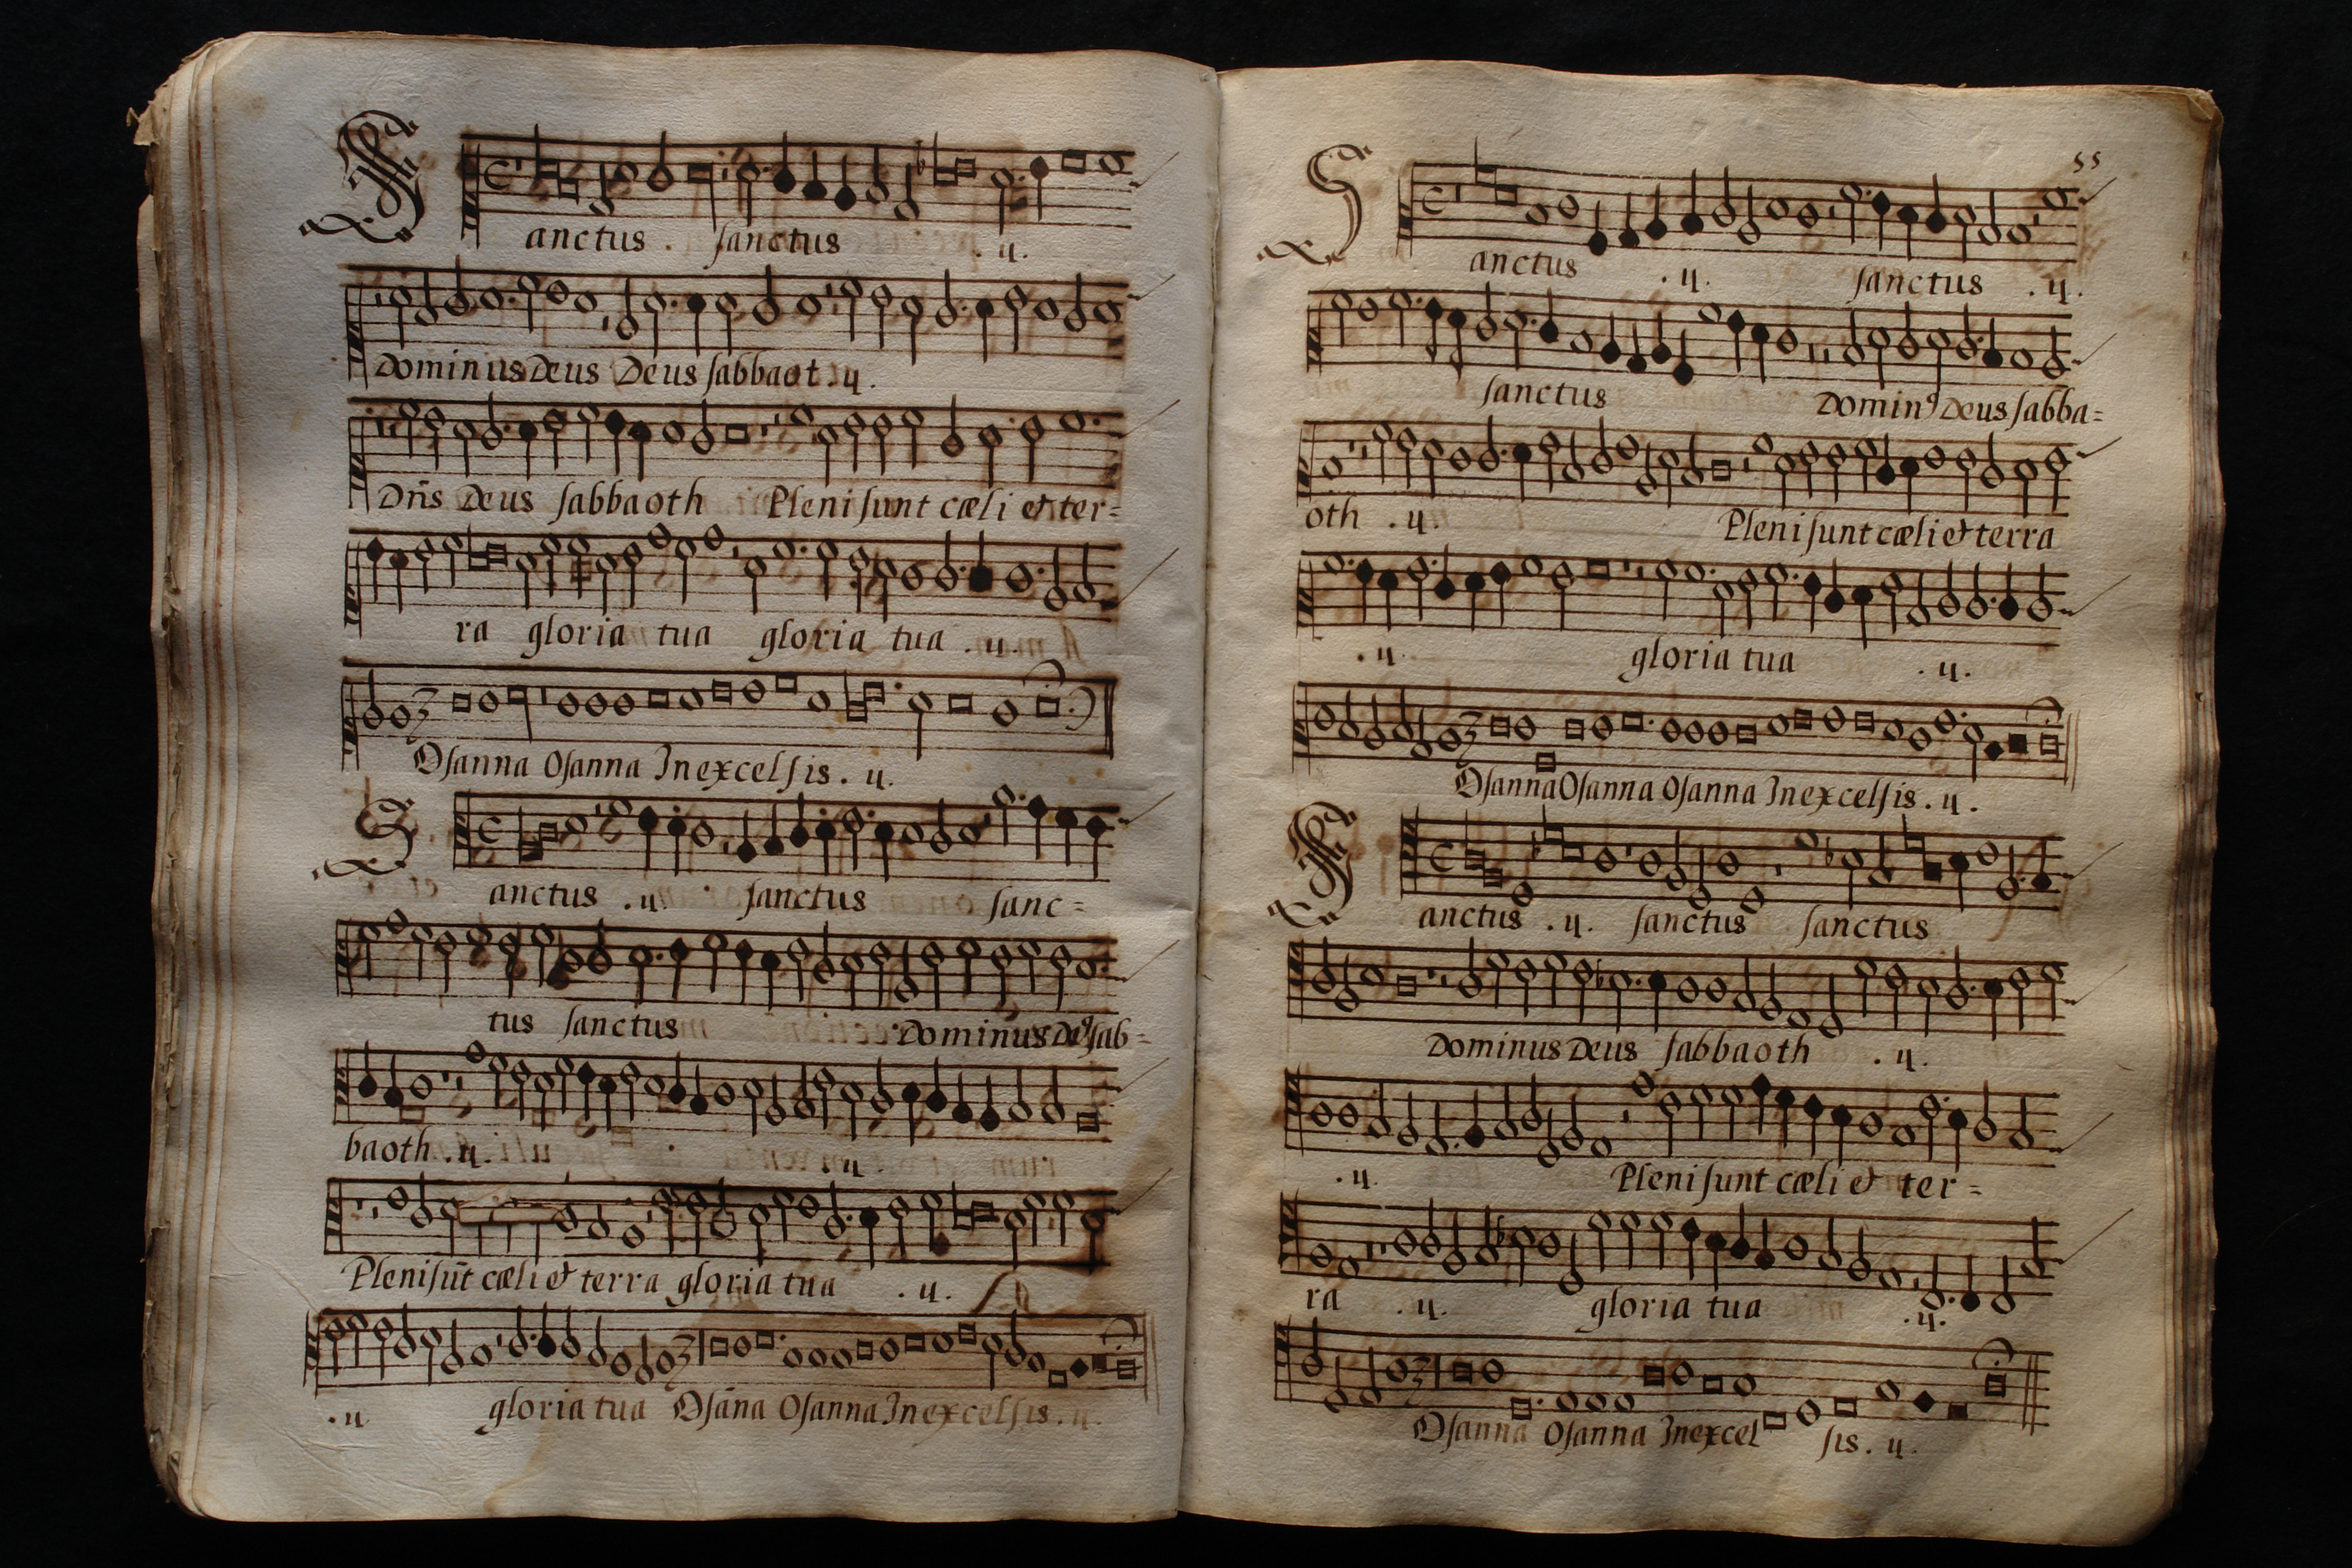 Sanctus . ſanctus . ıj.
Dominus Deus Deus ſabbaot . ıj.
Dn̄s Deus ſabbaoth Pleni ſunt cæli et ter=
ra gloria tua gloria tua . ıj.
Oſanna Oſanna In excelſis . ıj.
Sanctus . ıj. ſanctus ſanc=
tus ſanctus Dominus De9 ſab=
baoth . ıj. . ıj.
Pleni ſūt cæli et terra gloria tua . ıj.
. ıj. gloria tua Oſāna Oſanna In excelſis . ıj.
55
Sanctus . ıj. ſanctus . ıj.
ſanctus Domin9 Deus ſabba=
oth . ıj. Pleni ſunt cæli et terra
. ıj. gloria tua . ıj.
Oſanna Oſanna Oſanna In excelſis . ıj.
Sanctus . ıj. ſanctus ſanctus
Dominus Deus ſabbaoth . ıj.
. ıj. Pleni ſunt cæli et ter=
ra . ıj. gloria tua . ıj.
Oſanna Oſanna In excel ſis . ıj.